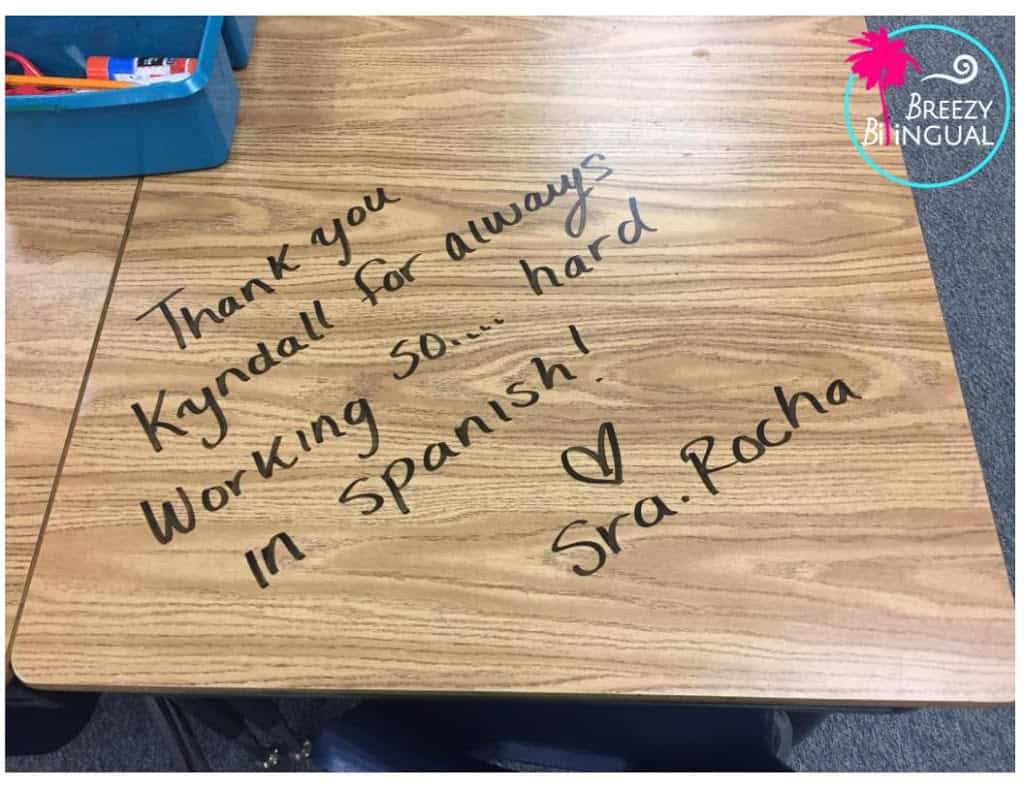 Thank you
Kyndall for always
working so.... hard
in Spanish!
♡
Sra. Rocha
BREEZY
BiliNGUAL